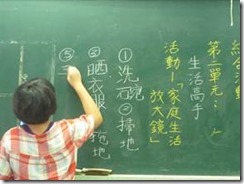 綜合活動
第二單元：
生活高手
活動1-「家庭生活
放大鏡」
①洗碗②掃地
③晒衣服 拖地
⑤